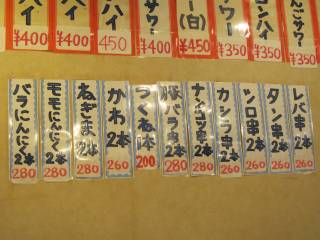 ハイ ¥400
ハイ ¥400
ハイ 450
サワー ¥400
ー(白) ¥450
ワー ¥350
ンハイ ¥350
んごサワー ¥350
バラにんにく 2本 280
モモにんにく 2本 280
ねぎま 2本 280
かわ 2本 260
つくね 1本 200
豚バラ串 2本 280
ナンコツ串 2本 280
カシラ串 2本 260
シロ串 2本 260
タン串 2本 260
レバ串 2本 260